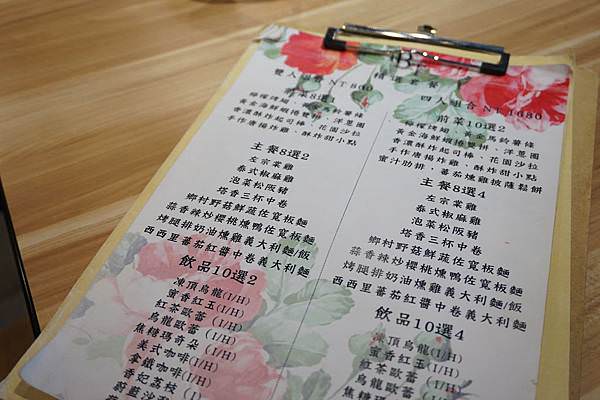 精選套餐
雙人組合 NT 800
前菜8選1
檸檬烤翅、黃金馬鈴薯條
黃金海鮮蝦捲雙拼、洋蔥圈
香濃酥炸起司棒、花園沙拉
手作唐揚炸雞、酥炸甜小點
主餐8選2
左宗棠雞
泰式椒麻雞
泡菜松阪豬
塔香三杯中卷
鄉村野菇鮮蔬佐寬板麵
蒜香辣炒櫻桃燻鴨佐寬板麵
烤腿排奶油燻雞義大利麵/飯
西西里蕃茄紅醬中卷義大利麵
飲品10選2
凍頂烏龍(I/H)
蜜香紅玉(I/H)
紅茶歐蕾(I/H)
烏龍歐蕾(I/H)
焦糖瑪奇朵(I/H)
美式咖啡(I/H)
拿鐵咖啡(I/H)
香妃荔枝(I)
四人組合 NT 1680
前菜10選2
檸檬烤翅、黃金馬鈴薯條
黃金海鮮蝦捲雙拼、洋蔥圈
香濃酥炸起司棒、花園沙拉
手作唐揚炸雞、酥炸甜小點
蜜汁肋排、蕃茄燻雞披薩鬆餅
主餐8選4
左宗棠雞
泰式椒麻雞
泡菜松阪豬
塔香三杯中卷
鄉村野菇鮮蔬佐寬板麵
蒜香辣炒櫻桃燻鴨佐寬板麵
烤腿排奶油燻雞義大利麵/飯
西西里蕃茄紅醬中卷義大利麵
飲品10選4
凍頂烏龍(I/H)
蜜香紅玉(I/H)
紅茶歐蕾(I/H)
烏龍歐蕾(I/H)